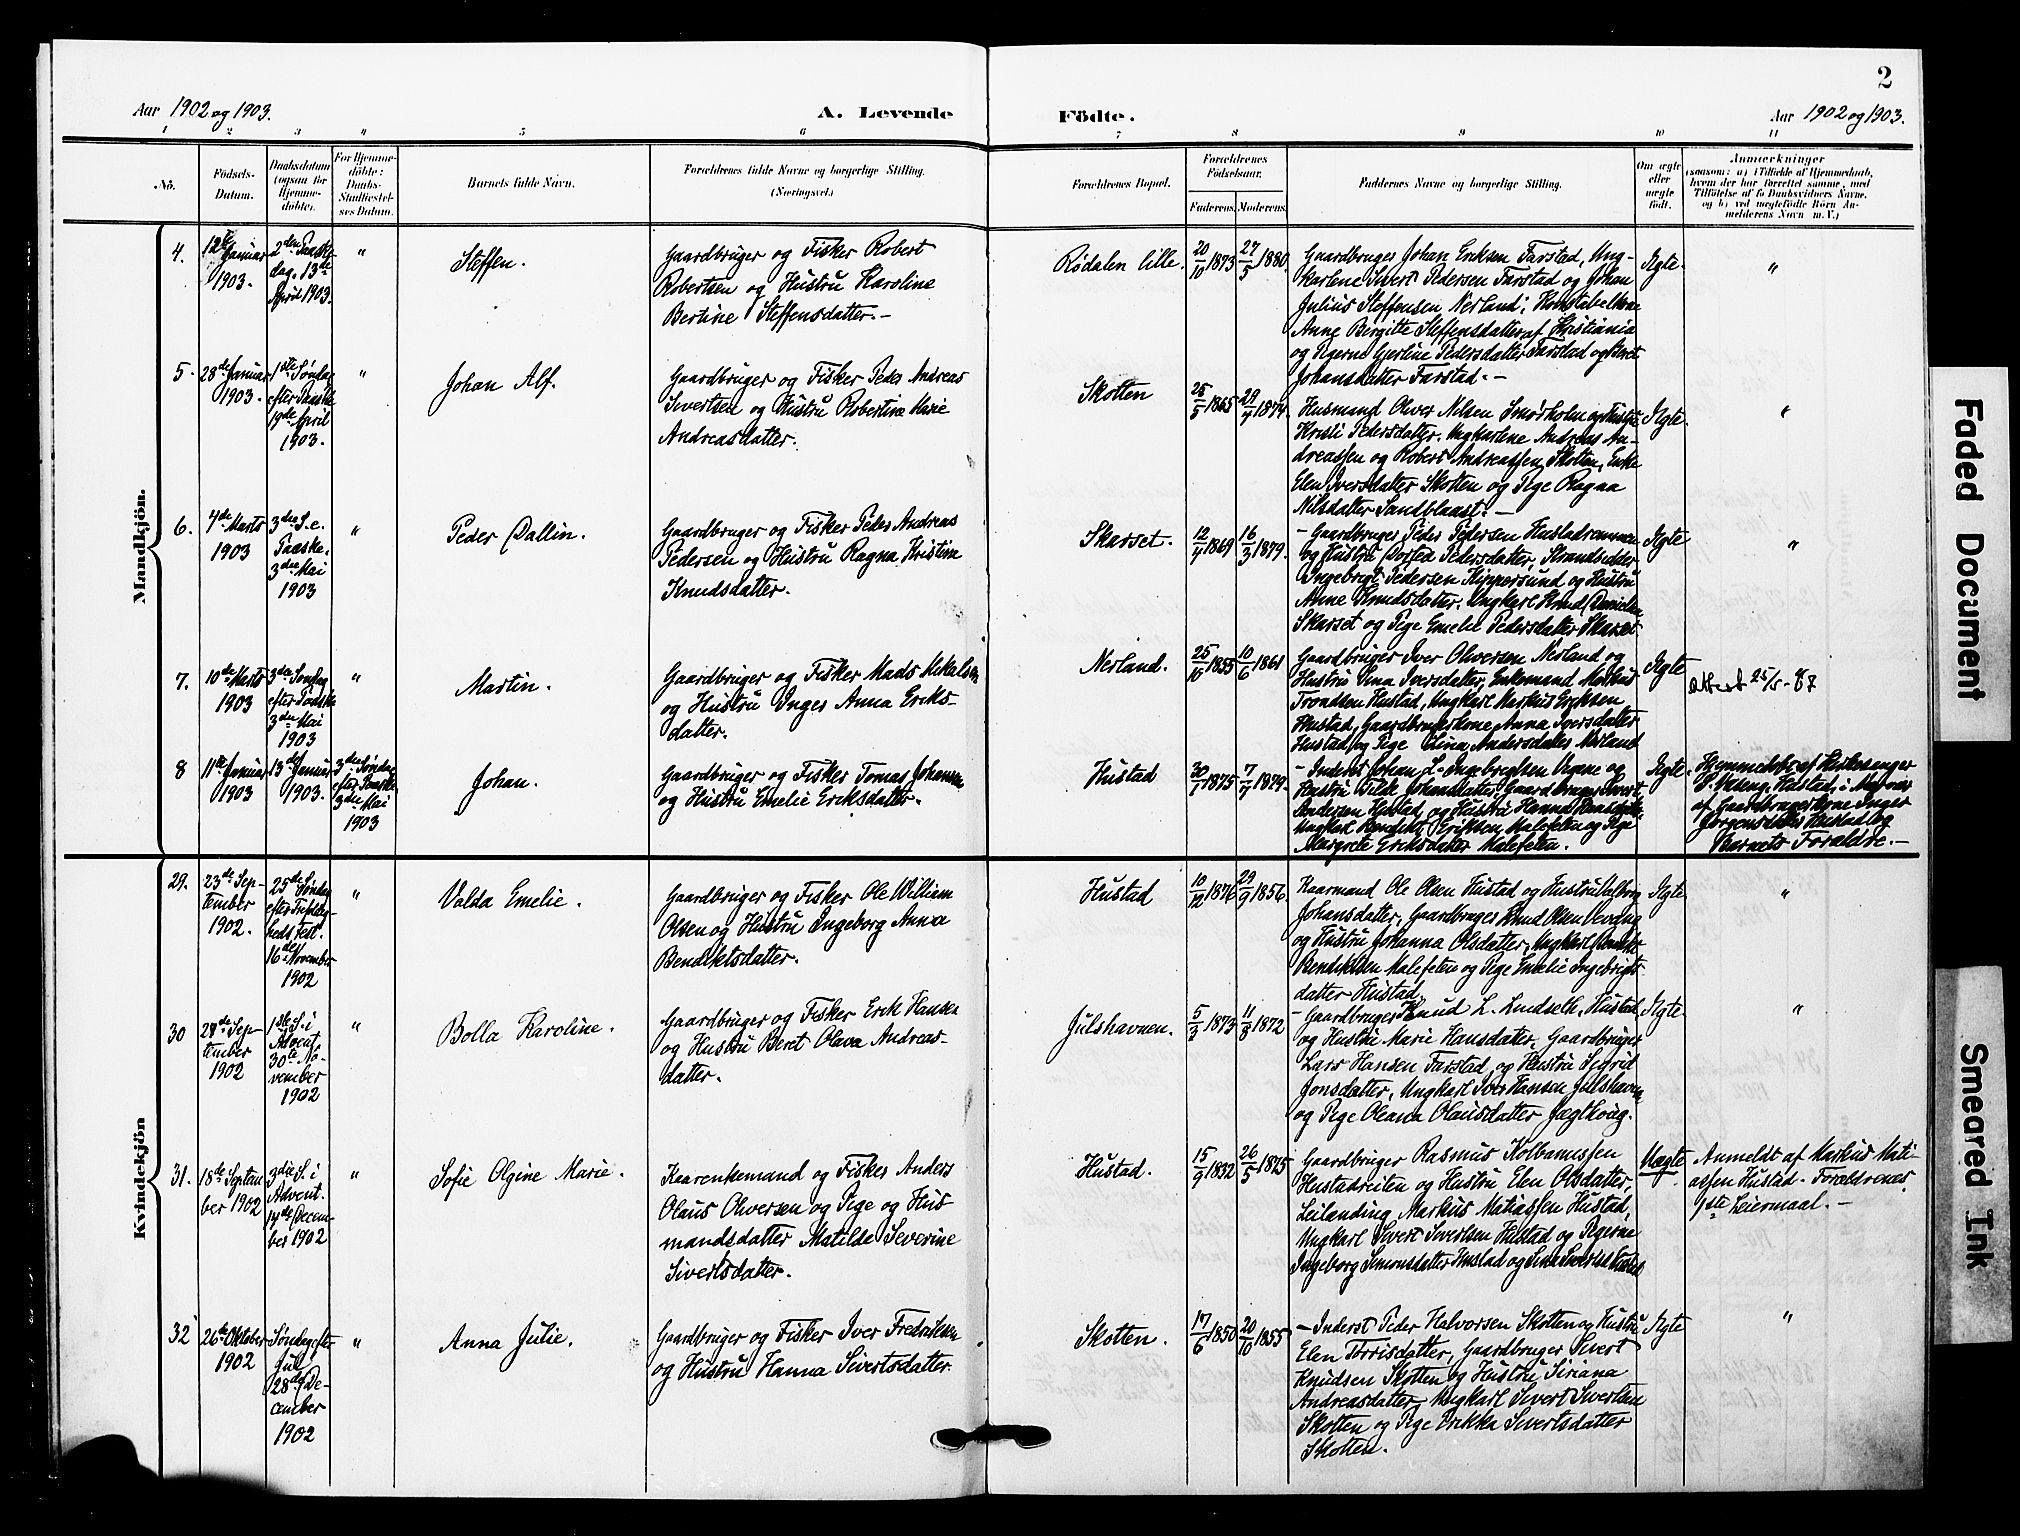 2
Aar 1902 og 1903.
A. Levende
Födte.
Aar 1902 og 1903.
1 2 3 4 5 6 7 8 9 10 11
No.
Födsels-
Datum.
Daabsdatum
(ogsaa for
Hjemme-
döbte).
For Hjemme-
döbte:
Daabs-
Stadfæstel-
ses Datum.
Barnets fulde Navn.
Forældrenes fulde Navne og borgerlige Stilling.
(Næringsvei.)
Forældrenes Bopæl.
Forældrenes
Födselsaar.
Faderens. Moderens.
Faddernes Navne og borgerlige Stilling.
Om ægte
eller
uægte
født.
Anmærkninger
(saasom: a) i Tilfælde af Hjemmedaab,
hvem der har forrettet samme, med
Tilföielse af to Daabsvidners Navne,
og b) ved uægtefödte Börn An-
melderens Navn m. V.)
Mandkjön.
4.
12te Januar
1903.
2den Paaske-
dag. 13de
April 1903.
"
Steffen.
Gaardbruger og Fisker Robert
Robertsen og Hustru Karoline
Bertine Steffensdatter.—
Rødalen lille.
20/10 1873
27/5 1880
Gaardbruger Johan Eriksen Farstad, Ung-
karlene Sivert Pedersen Farstad og Johan
Julius Steffensen Nerland; Konstabelkone
Anne Bergitte Steffensdatter af Kristiania
og Pigerne Gjertine Pedersdatter Farstad og Beret
Johansdatter Farstad.—
Ægte.
"
5.
28de Januar
1903.
1ste Søndag
efter Paaske
19de April
1903.
"
Johan Alf.
Gaardbruger og Fisker Peder Andreas
Sivertsen og Hustru Robertine Marie
Andreasdatter.
Skotten
25/5 1865
29/7 1874
Husmand Oliver Nilsen Snørholm og Hustru
Kristi Pedersdatter. Ungkarlene Andreas An-
dreassen og Robert Andreassen Skotten, Enke
Elen Iversdatter Skotten og Pige Ragna
Nilsdatter Sandblaast.—
Ægte.
"
6.
4de Marts
1903
3die S. e.
Paaske.
3die Mai
1903
"
Peder Dallin.
Gaardbruger og Fisker Peder Andreas
Pedersen og Hustru Ragna Kristine
Knudsdatter.
Skarset.
12/4 1869
16/3 1879.
— Gaardbruger Peder Pedersen Hustad
og Hustru Pedersdatter, Strandsidder
Ingebrigt Pedersen Skippersund og Hustru
Anne Knudsdatter. Ungkarl Knud Danielsen
Skarset og Pige Emelie Pedersdatter Skarset
Ægte
"
7.
10de Marts
1903
3die Søndag
efter Paaske
3die Mai
1903
"
Martin.
Gaardbruger og Fisker Mads Mikalsen
og Hustru Inger Anna Eriks-
datter.
Nerland.
25/10 1855
10/6 1861
Gaardbruger Iver Oliversen Nerland og
Hustru Iversdatter, Enkemand
Trondsen Hustad, Ungkarl Markus Eriksen
Hustad, Gaardbrugerkone Anna Iversdatter
Hustad og Pige Elina Andersdatter Nerland
Ægte
Attest 25/5-87
8
11te Januar
1903
13de Januar
1903.
3die Søndag
efter Paaske
3die Mai
1903
Johan.
Gaardbruger og Fisker Tomas Johansen
og Hustru Emelie Eriksdatter.
Hustad
30/1 1875
7/7 1879.
— Inderst Johan L. Ingebrigtsen Vegene og
Hustru Gaardbruger Sivert
Andersen Hustad og Hustru Hanna
Ungkarl Bendikt Eriksen Malefeten og Pige
Margrete Eriksdatter Malefeten.
Ægte.
Hjemmedøbt af Kirkesanger
Hustad, i Nærvær
af Gaardbrugerkone Inger
Jørgensdatter Hustad og
Barnets Forældre.—
Kvindekjön
29.
23de Sep-
tember
1902.
25de Søndag
efter Trefoldig-
heds Fest.
16de November
1902
"
Valda Emelie.
Gaardbruger og Fisker Ole William
Olsen og Hustru Ingeborg Anna
Bendiktsdatter.
Hustad
10/12 1876
29/9 1856.
Kaarmand Ole Olsen Hustad og Hustru Valborg
Johansdatter, Gaardbruger Knud Olsen
og Hustru Johanna Olsdatter, Ungkarl
Bendiktsen Malefeten og Pige Emelie Ingebrigts-
datter Hustad.
Ægte.
"
30
28de Sep-
tember
1902
1ste S. i
Advent.
30te No-
vember
1902
"
Bolla Karoline.
Gaardbruger og Fisker Erik Hansen
og Hustru Beret Olava Andreas-
datter.
Julshavnen.
5/3 1873
11/8 1872
— Gaardbruger Knud L. Lindseth, Hustad
og Hustru Marie Hansdatter, Gaardbruger
Lars Hansen Farstad og Hustru Sigrid
Jonsdatter, Ungkarl Iver Hansen Julshavnen
og Pige Oleana Olausdatter Jægthoug.
Ægte.
"
31.
18de Septem-
ber 1902
3die S. i
Advent.
14de Decem-
ber 1902
"
Sofie Olgine Marie.
Kaarenkemand og Fisker Anders
Olaus Oliversen og Pige og Hus-
mandsdatter Matilde Severine
Sivertsdatter.
Hustad.
15/9 1832
26/5 1875
Gaardbruger Rasmus Kolbanussen
Hustadreiten og Hustru Elen Olsdatter,
Leilænding Markus Matiassen Hustad,
Ungkarl Sivert Sivertsen Hustad og Pigerne
Ingeborg Simonsdatter Hustad og
Uægte
Anmeldt af Markus Mati-
assen Hustad. Forældrenes
1ste Leiermaal.—
32
26de Oktober
1902
Søndag efter
Jul
28de De-
cember
1902
"
Anna Julie.
Gaardbruger og Fisker Iver Fredriksen
og Hustru Hanna Sivertsdatter.
Skotten.
17/6 1850
20/10 1855
— Inderst Peder Halvorsen Skotten og Hustru
Elen Torrisdatter, Gaardbruger Sivert
Knudsen Skotten og Hustru Siriana
Andreasdatter, Ungkarl Sivert Sivertsen
Skotten og Pige Erikka Sivertsdatter
Skotten.
Ægte
"
Faded Document
Smeared Ink